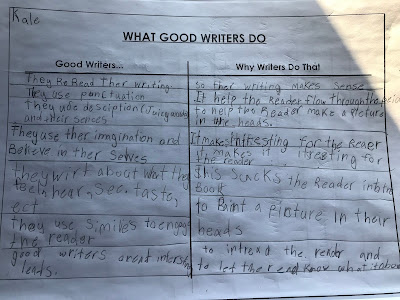 Kale
WHAT GOOD WRITERS DO
Good Writers...
Why Writers Do That
They Re Read ther writing
so ther writing makes sense
They use punctuation
It help the Reader flow through the
They use desciption (
and their senses
to help the Reader make a picture
in ther heads.
They use ther imagination and
Believe in ther selves
It makes intresting for the Reaer
makes it itresting for
the reader
They wirt about what they
feel, hear, see, taste,
ect.
this sucks the Reader into the
Book
They use similes to engage
the reader
to Paint a picture in their
heads
good writers
leads.
to intrend the reader and
to let the read know what it about